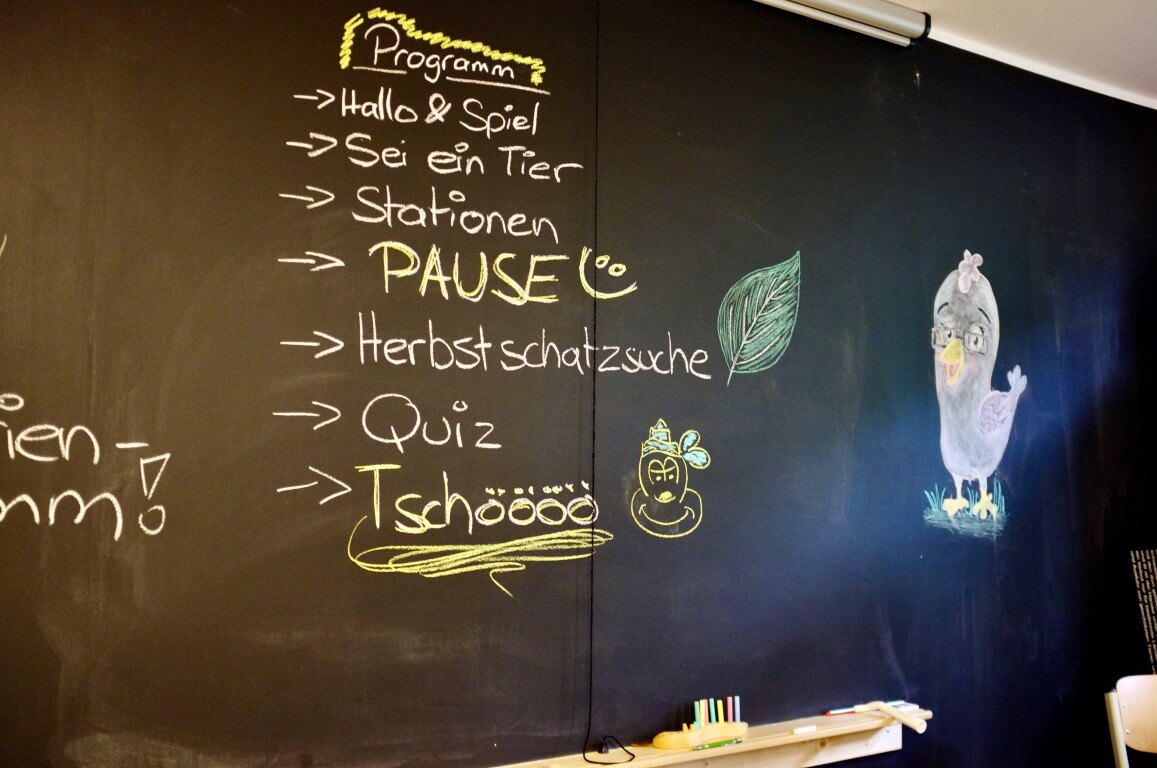 Programm
→Hallo & Spiel
→ Sei ein Tier
→ Stationen
→ PAUSE
→ Herbstschatzsuche
→ Quiz
→ Tschöööö
ien-
mm!